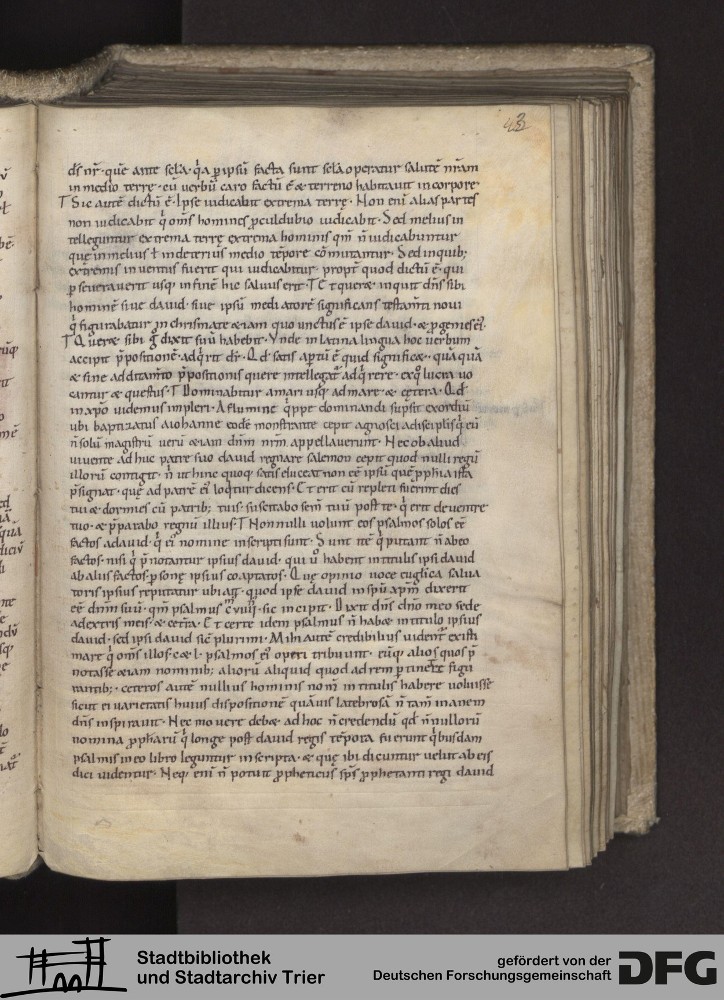 43
dš nr̄· quē ante sc̄la· q̄a p̱ ipsū facta sunt sc̄la operatur salutē nr̄am
in medio terrę· cū verbū caro factū ē· & terreno habitauit in corpore·
Sic autē dictū ē· Ipse iudicabit extrema terrę· Non eni alias partes
non iudicabit q̄ om̄s homines p̱culdubio iudicabit· Sed melius in
telleguntur extrema terrę extrema hominis qm̄ n̄ iudicabuntur
quę in melius ł in deterius medio tēpore cōmutantur· Sed in quib;
extremis inuentus fuerit qui iudicabitur· propt̄ quod dictū ē· qui
p̱seuerauerit usq; in finē hic saluus erit· Et querę inquit dn̄s sibi
hominē siue dauid· siue ipsū mediatorē significans testam̄ti noui
q̄ figurabatur in chrismate & iam quo unctus ē ipse dauid·
Querę sibi dixit suū habebit· Vnde in latina lingua hoc uerbum
accipit p̄positionē· adq̄rit dr̄· Qd̄ satis aptū ē quid significę· quāquā
& sine additam̄to p̄positionis quere intellegat̄ adq̄rere· ex q̊ lucra uo
cantur & questus· Dominabitur a mari usq; ad mare· & cętera· Qd̄
in xp̄o uidemus impleri· A flumine q̄ppe dominandi sūpsit exordiū
ubi baptizatus a iohanne eodē monstrante cępit agnosci a discipulis q̄ eū
n̄ solū magistrū uerū & iam dn̄m nr̄m appellauerunt· Nec ob aliud
uiuente ad huc patre suo dauid regnare salemon cepit quod nulli regū
illorū contigit· n̄ ut hinc quoq; satis eluceat non eē ipsū quē p̱phia ista
p̄signat· quę ad patrē ei' loq̄tur dicens· Et erit cū repleti fuerint dies
tui & dormies cū patrib; tuis· suscitabo sem̄ tuū post te· q̄ erit de uentre
tuo· & p̄parabo regnū illius· Nonnulli uolunt eos psalmos solos eē
factos a dauid· q̄ ei' nomine inscripti sunt· Sunt itē q̄ putant n̄ ab eo
factos· nisi q̄ p̄notantur ipsius dauid· qui ů habent in titulis ipsi dauid
ab aliis factos p̱sonę ipsius coaptatos· Quę opinio uoce euglica salua
toris ipsius reputatur ubi ait· quod ipse dauid in spū xp̄m dixerit
eē dn̄m suū· qm̄ psalmus cviiij· sic incipit· Dixit dn̄s dn̄o meo sede
a dextris meis· & cet̄a· Et certe idem psalmus n̄ habę in titulo ipsius
dauid· sed ipsi dauid sic̄ plurimi· Mihi autē credibilius uident̄ existi
mare q̄ om̄s illos· c & l· psalmos ei' operi tribuunt· eūq; alios quos p̄
notasse & iam nominib; aliorū aliquid quod ad rem p̱tineret figu
rantib;· ceteros autē nullius hominis nom̄ in titulis habere uoluisse
sicut ei uarietatis huius dispositionē quāuis latebrosā n̄ tam̄ inanem
dn̄s inspirauit· Nec mouere debę ad hoc n̄ credendū qd̄ n̄nullorū
nomina p̱phārū q̄ longe post dauid regis tēpora fuerunt q̄busdam
psalmis in eo libro leguntur inscripta· & quę ibi dicuntur uelut ab eis
dici uidentur· Neq; eni n̄ potuit p̱pheticus sp̄s p̱phetanti regi dauid
Stadtbibliothek
und Stadtarchiv Trier
gefördert von der
Deutschen Forschungsgemeinschaft
DFG